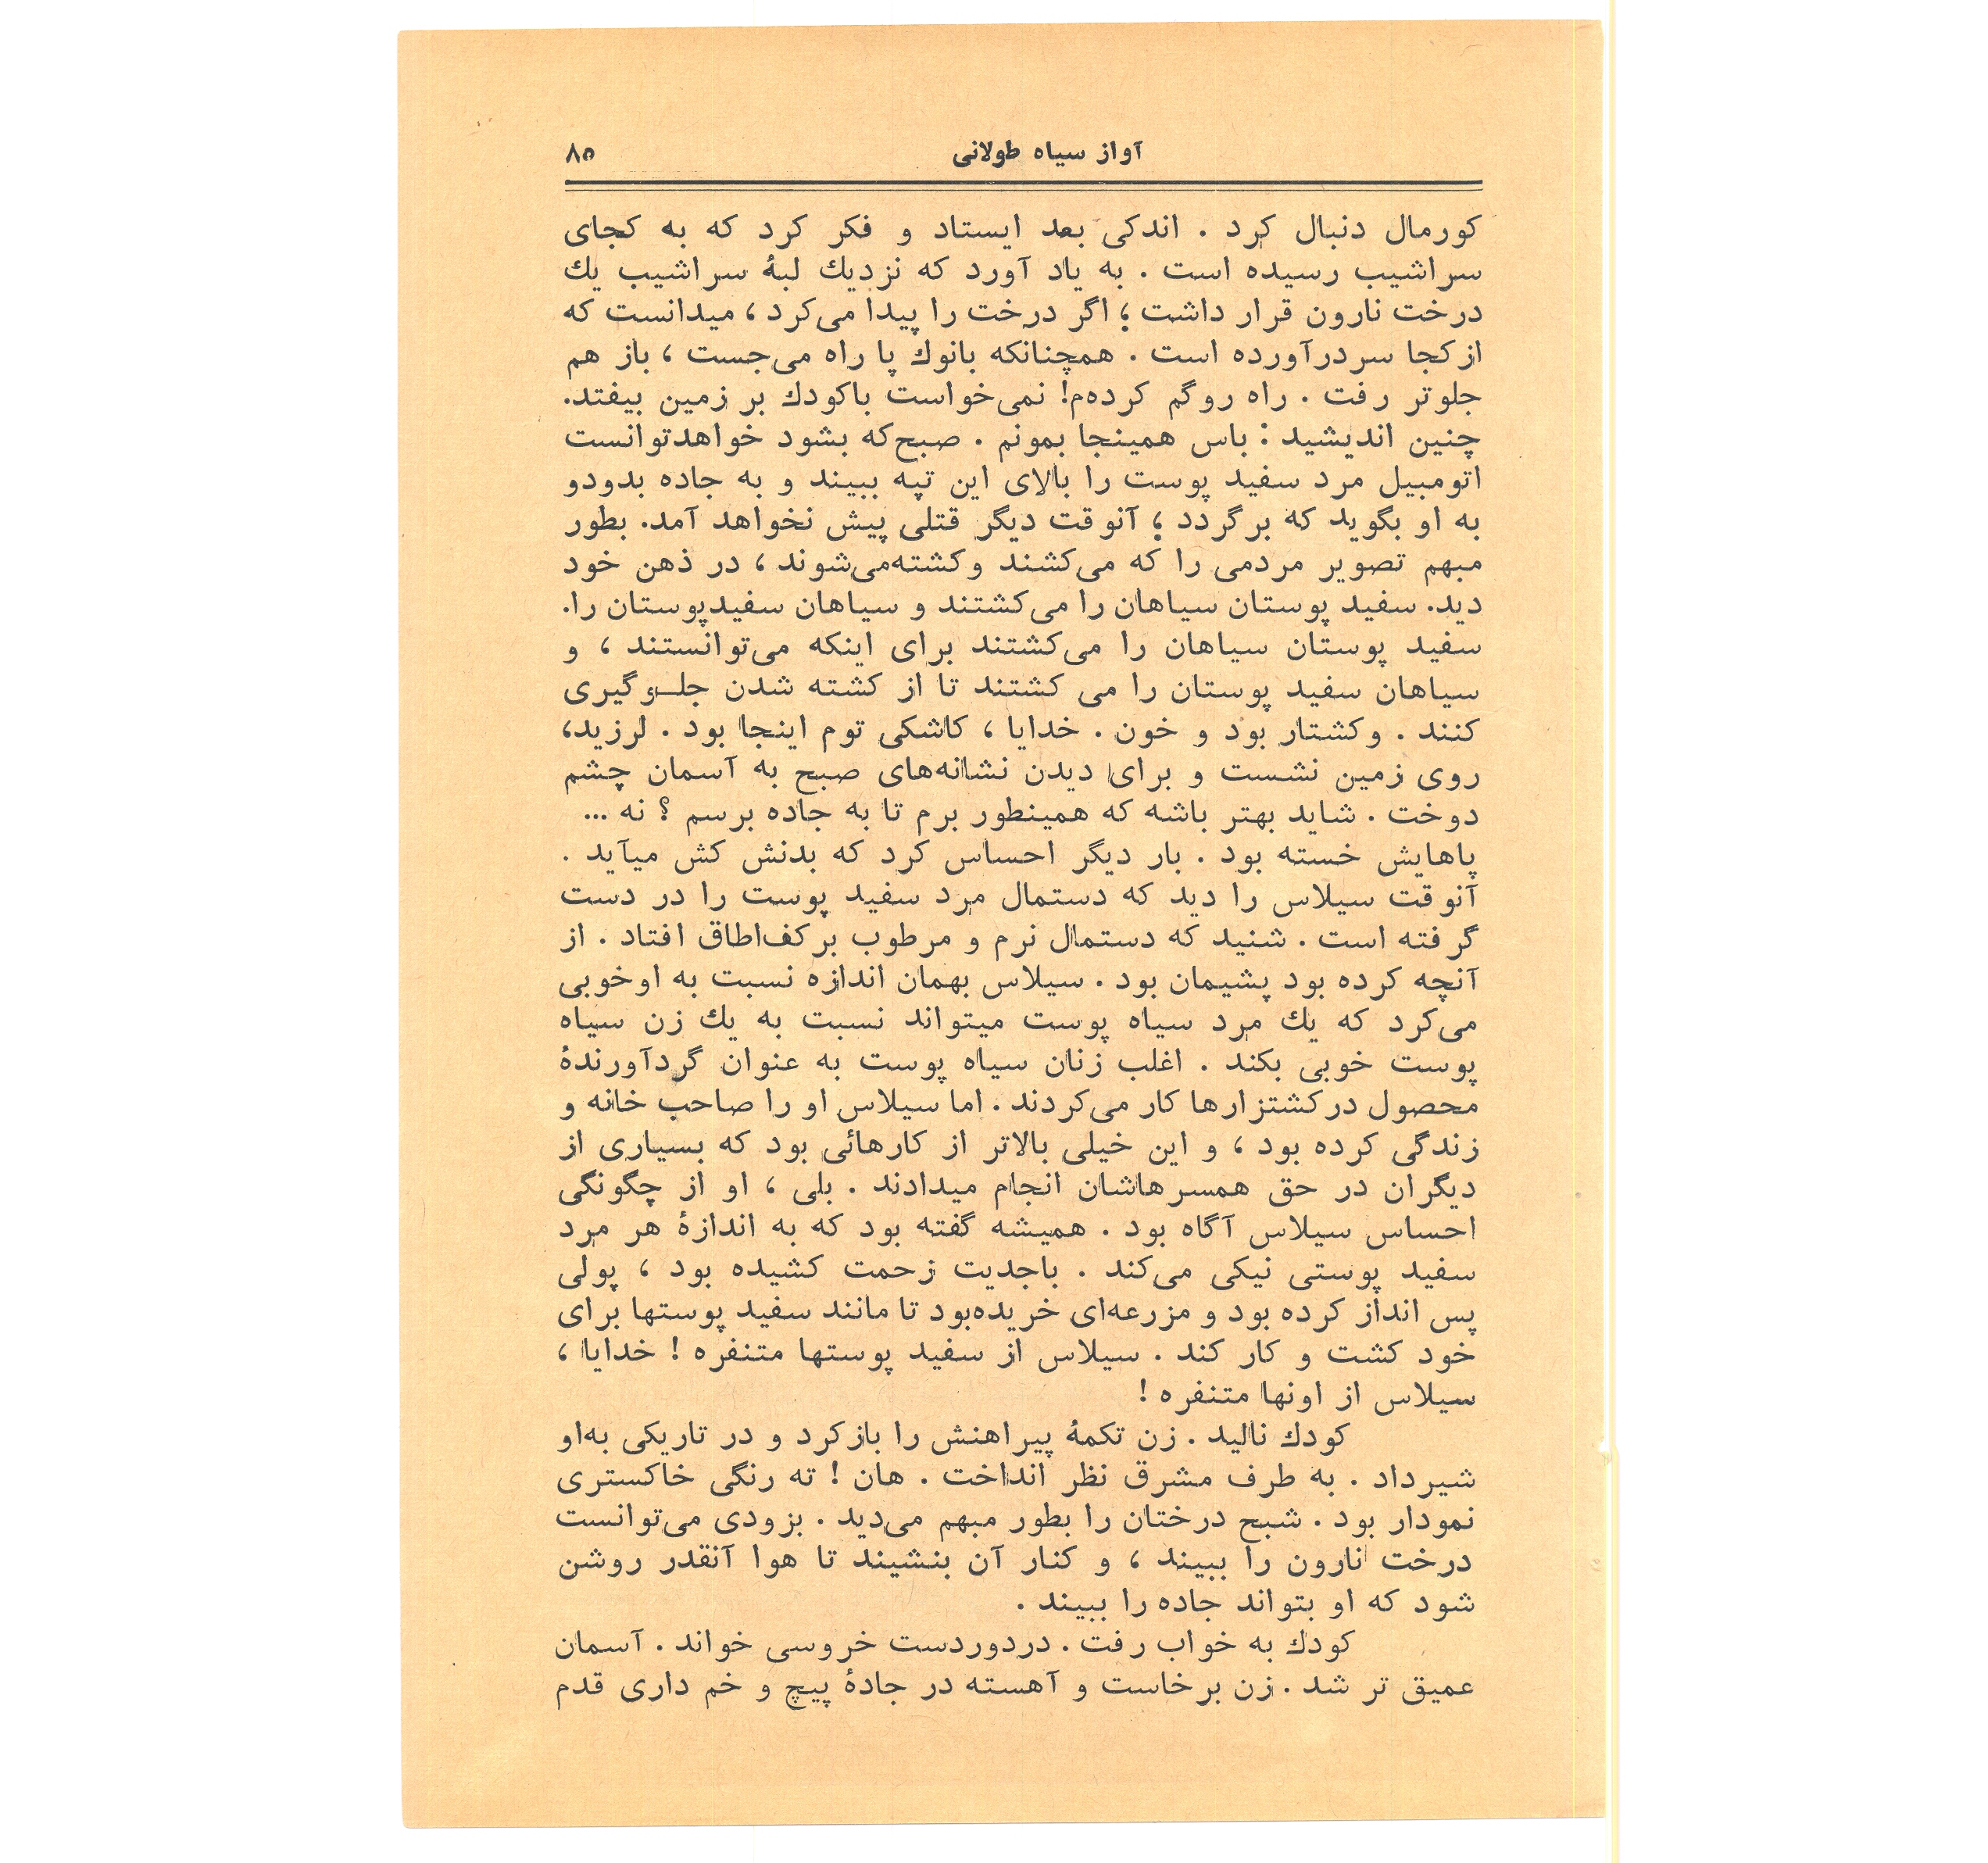 آواز سیاه طولانی ۸۵
کورمال دنبال کرد . اندکی بعد ایستاد و فکر کرد که به کجای
سراشیب رسیده است . به یاد آورد که نزدیك لبهٔ سراشیب یك
درخت نارون قرار داشت ؛ اگر درخت را پیدا می‌کرد ، میدانست که
از کجا سردرآورده است . همچنانکه بانوك پا راه می‌جست ، باز هم
جلوتر رفت . راه روگم کرده‌م! نمی‌خواست باکودك بر زمین بیفتد.
چنین اندیشید : باس همینجا بمونم . صبح‌که بشود خواهدتوانست
اتومبیل مرد سفید پوست را بالای این تپه ببیند و به جاده بدودو
به او بگوید که برگردد ؛ آنوقت دیگر قتلی پیش نخواهد آمد. بطور
مبهم تصویر مردمی را که می‌کشند وکشته‌می‌شوند ، در ذهن خود
دید. سفید پوستان سیاهان را می‌کشتند و سیاهان سفیدپوستان را.
سفید پوستان سیاهان را می‌کشتند برای اینکه می‌توانستند ، و
سیاهان سفید پوستان را می کشتند تا از کشته شدن جلـوگیری
کنند . وکشتار بود و خون . خدایا ، کاشکی توم اینجا بود . لرزید،
روی زمین نشست و برای دیدن نشانه‌های صبح به آسمان چشم
دوخت . شاید بهتر باشه که همینطور برم تا به جاده برسم ؟ نه ...
پاهایش خسته بود . بار دیگر احساس کرد که بدنش کش میآید .
آنوقت سیلاس را دید که دستمال مرد سفید پوست را در دست
گرفته است . شنید که دستمال نرم و مرطوب برکف‌اطاق افتاد . از
آنچه کرده بود پشیمان بود . سیلاس بهمان اندازه نسبت به اوخوبی
می‌کرد که یك مرد سیاه پوست میتواند نسبت به یك زن سیاه
پوست خوبی بکند . اغلب زنان سیاه پوست به عنوان گردآورندهٔ
محصول درکشتزارها کار می‌کردند . اما سیلاس او را صاحب خانه و
زندگی کرده بود ، و این خیلی بالاتر از کارهائی بود که بسیاری از
دیگران در حق همسرهاشان انجام میدادند . بلی ، او از چگونگی
احساس سیلاس آگاه بود . همیشه گفته بود که به اندازهٔ هر مرد
سفید پوستی نیکی می‌کند . باجدیت زحمت کشیده بود ، پولی
پس انداز کرده بود و مزرعه‌ای خریده‌بود تا مانند سفید پوستها برای
خود کشت و کار کند . سیلاس از سفید پوستها متنفره ! خدایا ،
سیلاس از اونها متنفره !
کودك نالید . زن تکمهٔ پیراهنش را بازکرد و در تاریکی به‌او
شیرداد . به طرف مشرق نظر انداخت . هان ! ته رنگی خاکستری
نمودار بود . شبح درختان را بطور مبهم می‌دید . بزودی می‌توانست
درخت نارون را ببیند ، و کنار آن بنشیند تا هوا آنقدر روشن
شود که او بتواند جاده را ببیند .
کودك به خواب رفت . دردوردست خروسی خواند . آسمان
عمیق تر شد . زن برخاست و آهسته در جادهٔ پیچ و خم داری قدم